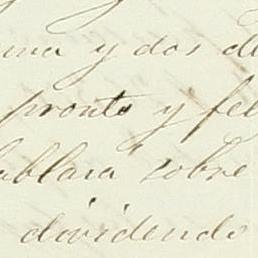 una y dos de
pronto y fel
ablara sobre
dividendo